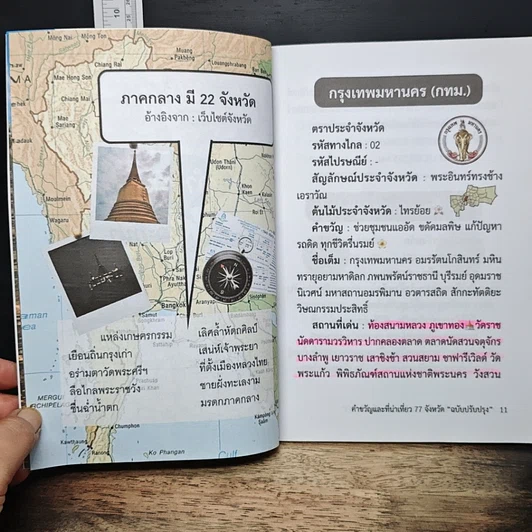 10
Mong Nai
Mong Ton
Chiang Rai
Muang Pakbeng
Louangphrabang
Mae Hong Son
Chiang Mai
Mae Sariang
ภาคกลาง มี 22 จังหวัด
อ้างอิงจาก : เว็บไซต์จังหวัด
Udon Thani
(Udorn)
Khon Kaen
Moulmein
Wagaru
Lop Buri
Bangkok
Aranyap
แหล่งเกษตรกรรม
เยือนถิ่นกรุงเก่า
อร่ามตาวัดพระศรีฯ
ลือไกลพระราชวัง
ชื่นฉ่ำน้ำตก
เลิศล้ำหัตถศิลป์
เสน่ห์เจ้าพระยา
ที่ตั้งเมืองหลวงไทย
ชายฝั่งทะเลงาม
มรดกภาคกลาง
MERGUI
ARCHIPELAGO
Kawthaung
Ranong
Chumphon
Ko Phangan
Kâmpóng Saôm
กรุงเทพมหานคร (กทม.)
ตราประจำจังหวัด
รหัสทางไกล : 02
รหัสไปรษณีย์ : -
สัญลักษณ์ประจำจังหวัด : พระอินทร์ทรงช้าง
เอราวัณ
ต้นไม้ประจำจังหวัด : ไทรย้อย
คำขวัญ : ช่วยชุมชนแออัด ขจัดมลพิษ แก้ปัญหา
รถติด ทุกชีวิตรื่นรมย์
ชื่อเต็ม : กรุงเทพมหานคร อมรรัตนโกสินทร์ มหิน
ทรายุธยามหาดิลก ภพนพรัตน์ราชธานี บุรีรมย์ อุดมราช
นิเวศน์ มหาสถานอมรพิมาน อวตารสถิต สักกะทัตติยะ
วิษณุกรรมประสิทธิ์
สถานที่เด่น : ท้องสนามหลวง ภูเขาทอง วัดราช
นัดดารามวรวิหาร ปากคลองตลาด ตลาดนัดสวนจตุจักร
บางลำพู เยาวราช เสาชิงช้า สวนสยาม ซาฟารีเวิลด์ วัด
พระแก้ว พิพิธภัณฑ์สถานแห่งชาติพระนคร วังสวน
คำขวัญและที่น่าเที่ยว 77 จังหวัด "ฉบับปรับปรุง" 11